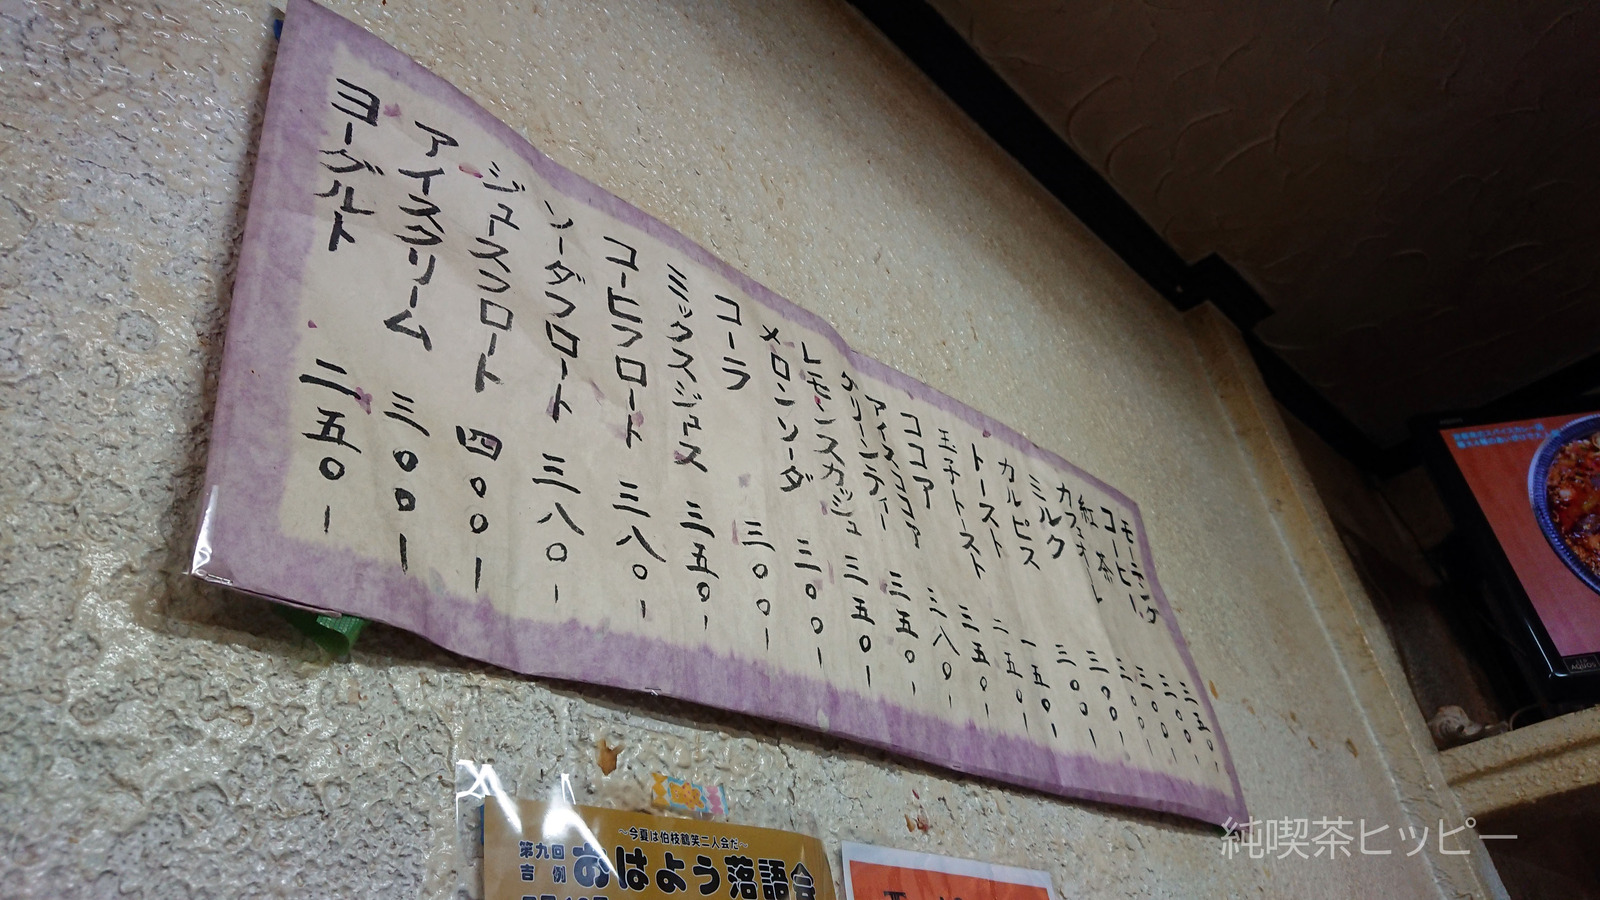 モーニング 三五〇-
コーヒー 三〇〇-
紅茶 三〇〇-
カフェオーレ 三〇〇-
ミルク 三〇〇-
カルピス 三〇〇-
トースト 一五〇-
玉子トースト 二五〇-
ココア 三五〇-
アイスココア 三八〇-
グリーンティー 三五〇-
レモンスカッシュ 三五〇-
メロンソーダ 三〇〇-
コーラ 三〇〇-
ミックスジュース 三五〇-
コーヒフロート 三八〇-
ソーダフロート 三八〇-
ジュースフロート 四〇〇-
アイスクリーム 三〇〇-
ヨーグルト 二五〇-
～今夏は伯枝鶴笑二人会だ～
第九回
吉例
おはよう落語会
AQUOS
純喫茶ヒッピー